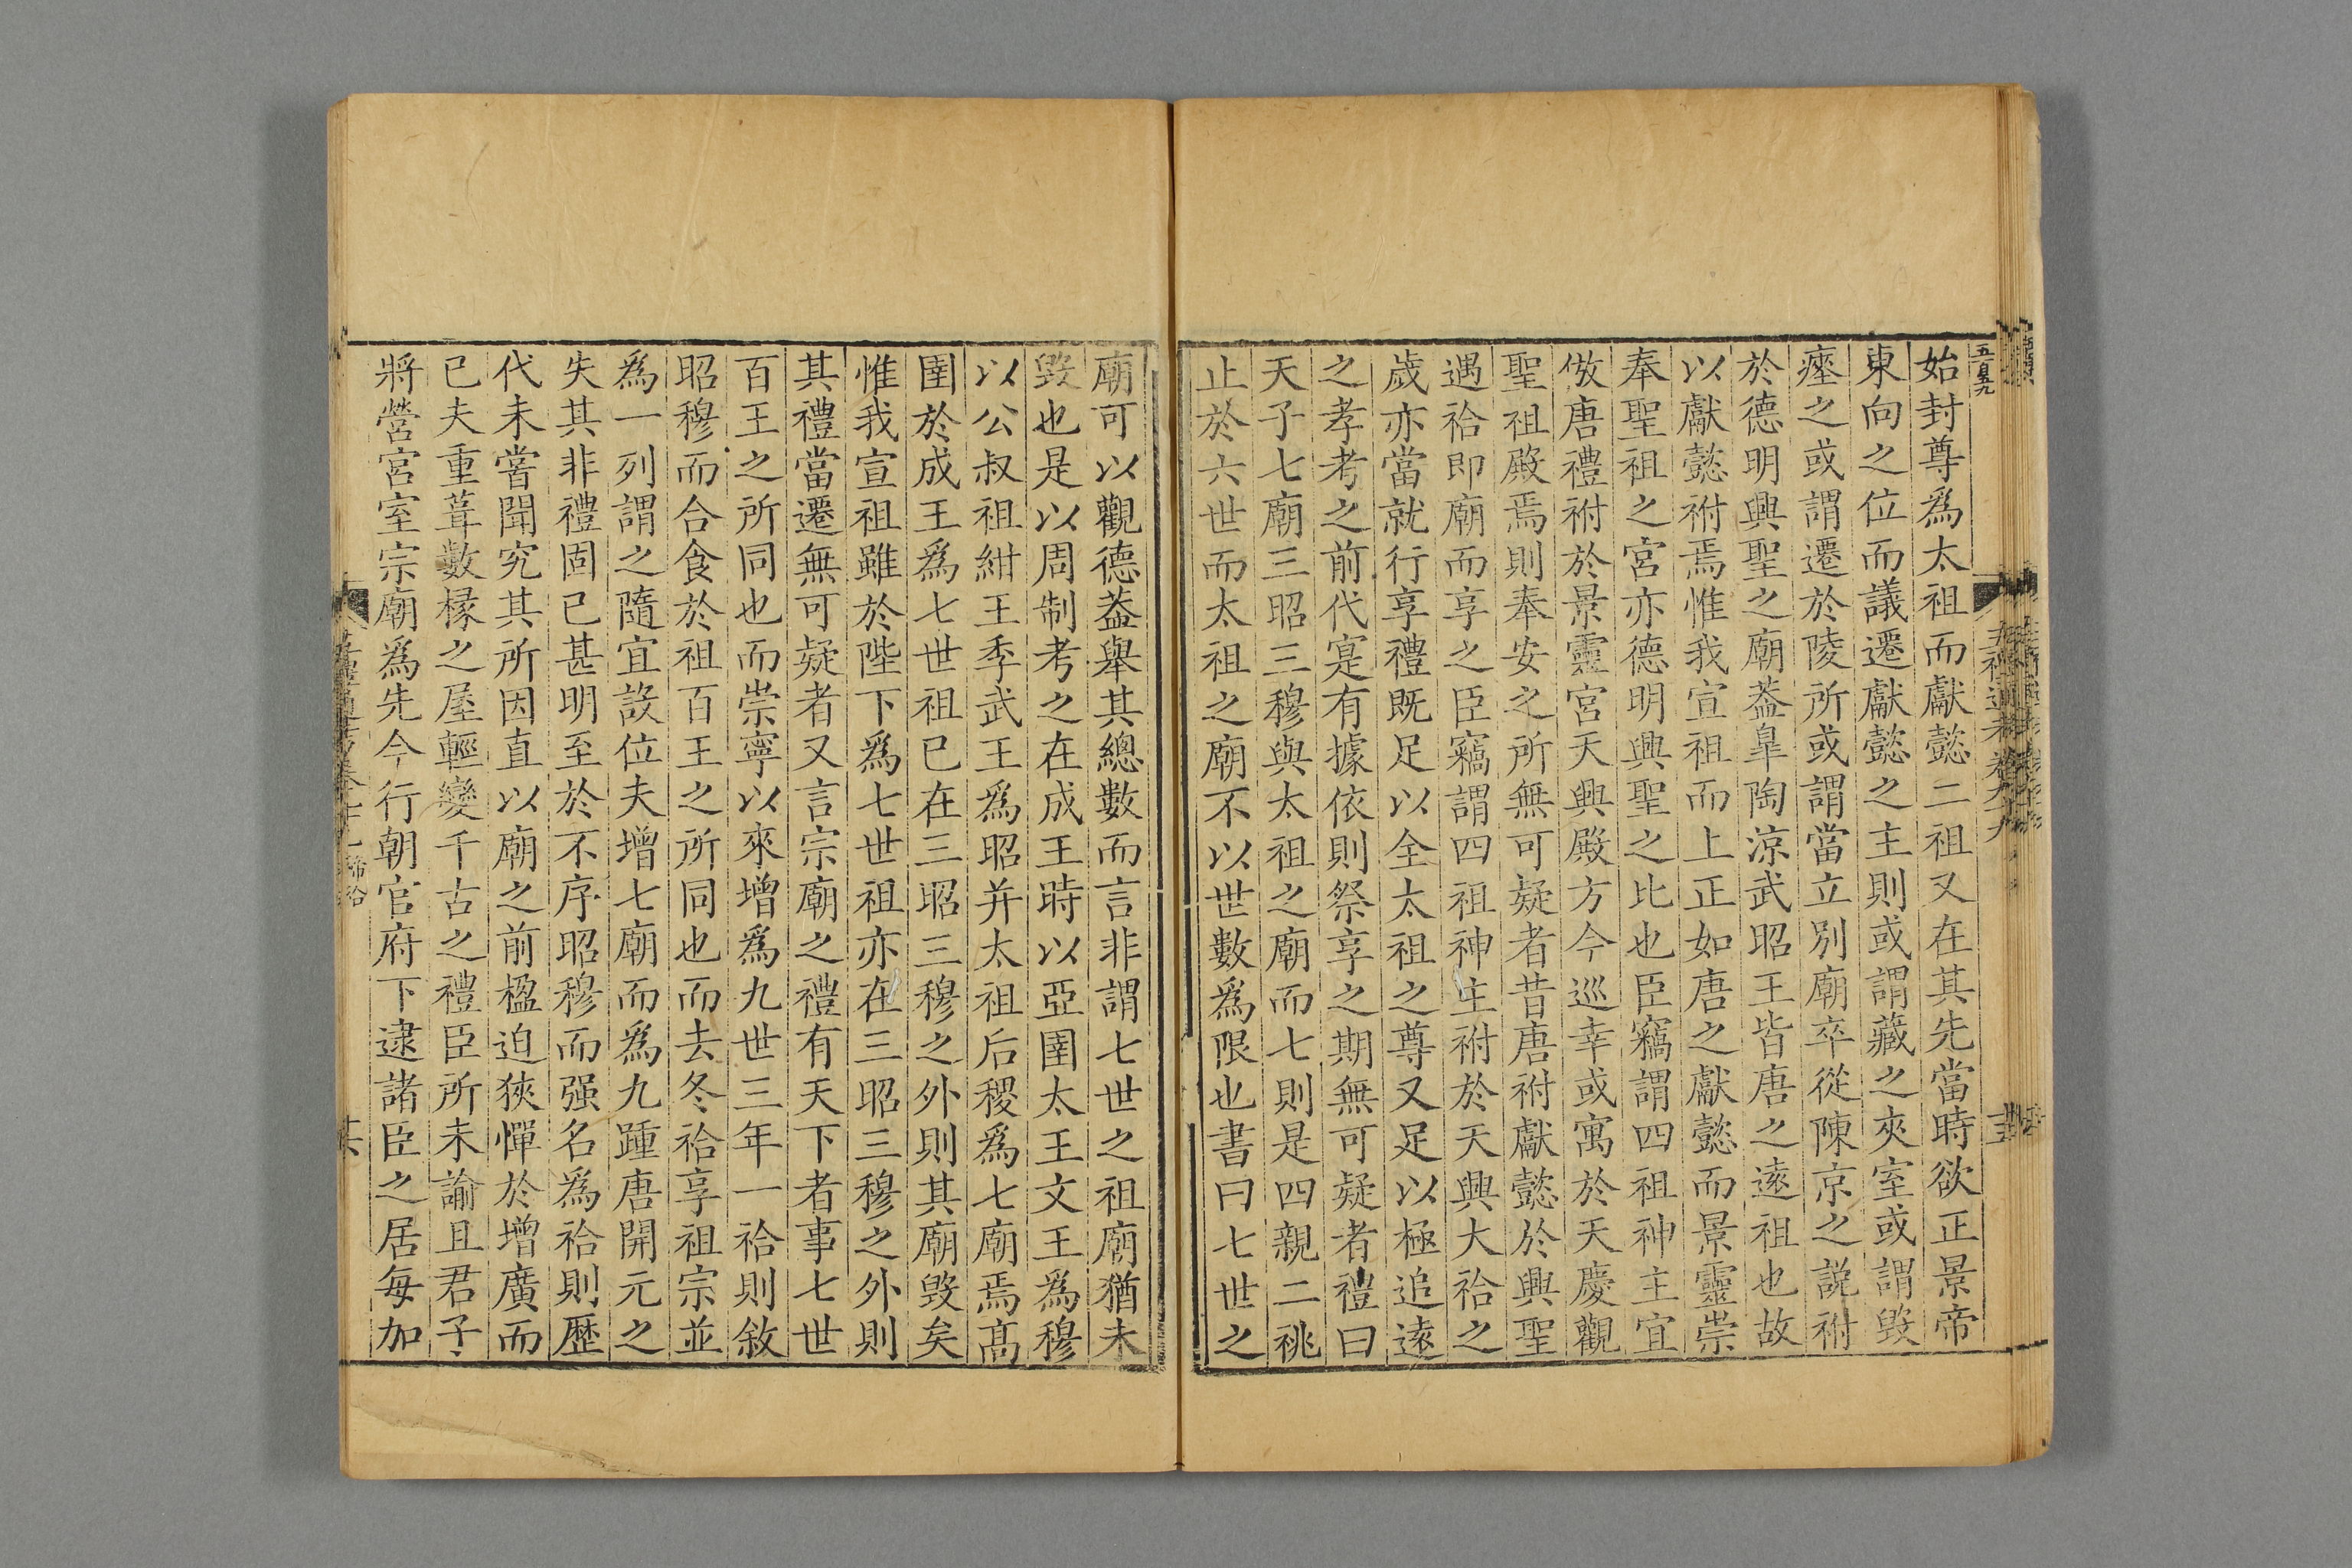 五百五九
始封尊為太祖而獻懿二祖又在其先當時欲正景帝
東向之位而議遷獻懿之主則或謂藏之夾室或謂毀
瘞之或謂遷於陵所或謂當立別廟卒從陳京之説祔
於德明興聖之廟葢臯陶涼武昭王皆唐之逺祖也故
以獻懿祔焉惟我宣祖而上正如唐之獻懿而景靈崇
奉聖祖之宮亦德明興聖之比也臣竊謂四祖神主宜
倣唐禮祔於景靈宮天興殿方今巡幸或寓於天慶觀
聖祖殿焉則奉安之所無可疑者昔唐祔獻懿於興聖
遇祫即廟而享之臣竊謂四祖神主祔於天興大祫之
歲亦當就行享禮既足以全太祖之尊又足以極追逺
之孝考之前代寔有據依則祭享之期無可疑者禮曰
天子七廟三昭三穆與太祖之廟而七則是四親二祧
止於六世而太祖之廟不以世數為限也書曰七世之
廟可以觀德葢舉其總數而言非謂七世之祖廟猶未
毀也是以周制考之在成王時以亞圉太王文王為穆
以公叔祖紺王季武王為昭并太祖后稷為七廟焉髙
圉於成王為七世祖已在三昭三穆之外則其廟毀矣
惟我宣祖雖於陛下為七世祖亦在三昭三穆之外則
其禮當遷無可疑者又言宗廟之禮有天下者事七世
百王之所同也而崇寧以來增為九世三年一祫則敘
昭穆而合食於祖百王之所同也而去冬祫享祖宗並
為一列謂之隨宜設位夫增七廟而為九踵唐開元之
失其非禮固已甚明至於不序昭穆而强名為祫則歷
代未嘗聞究其所因直以廟之前楹迫狹憚於增廣而
已夫重葺數椽之屋輕變千古之禮臣所未諭且君子
將營宮室宗廟為先今行朝官府下逮諸臣之居每加